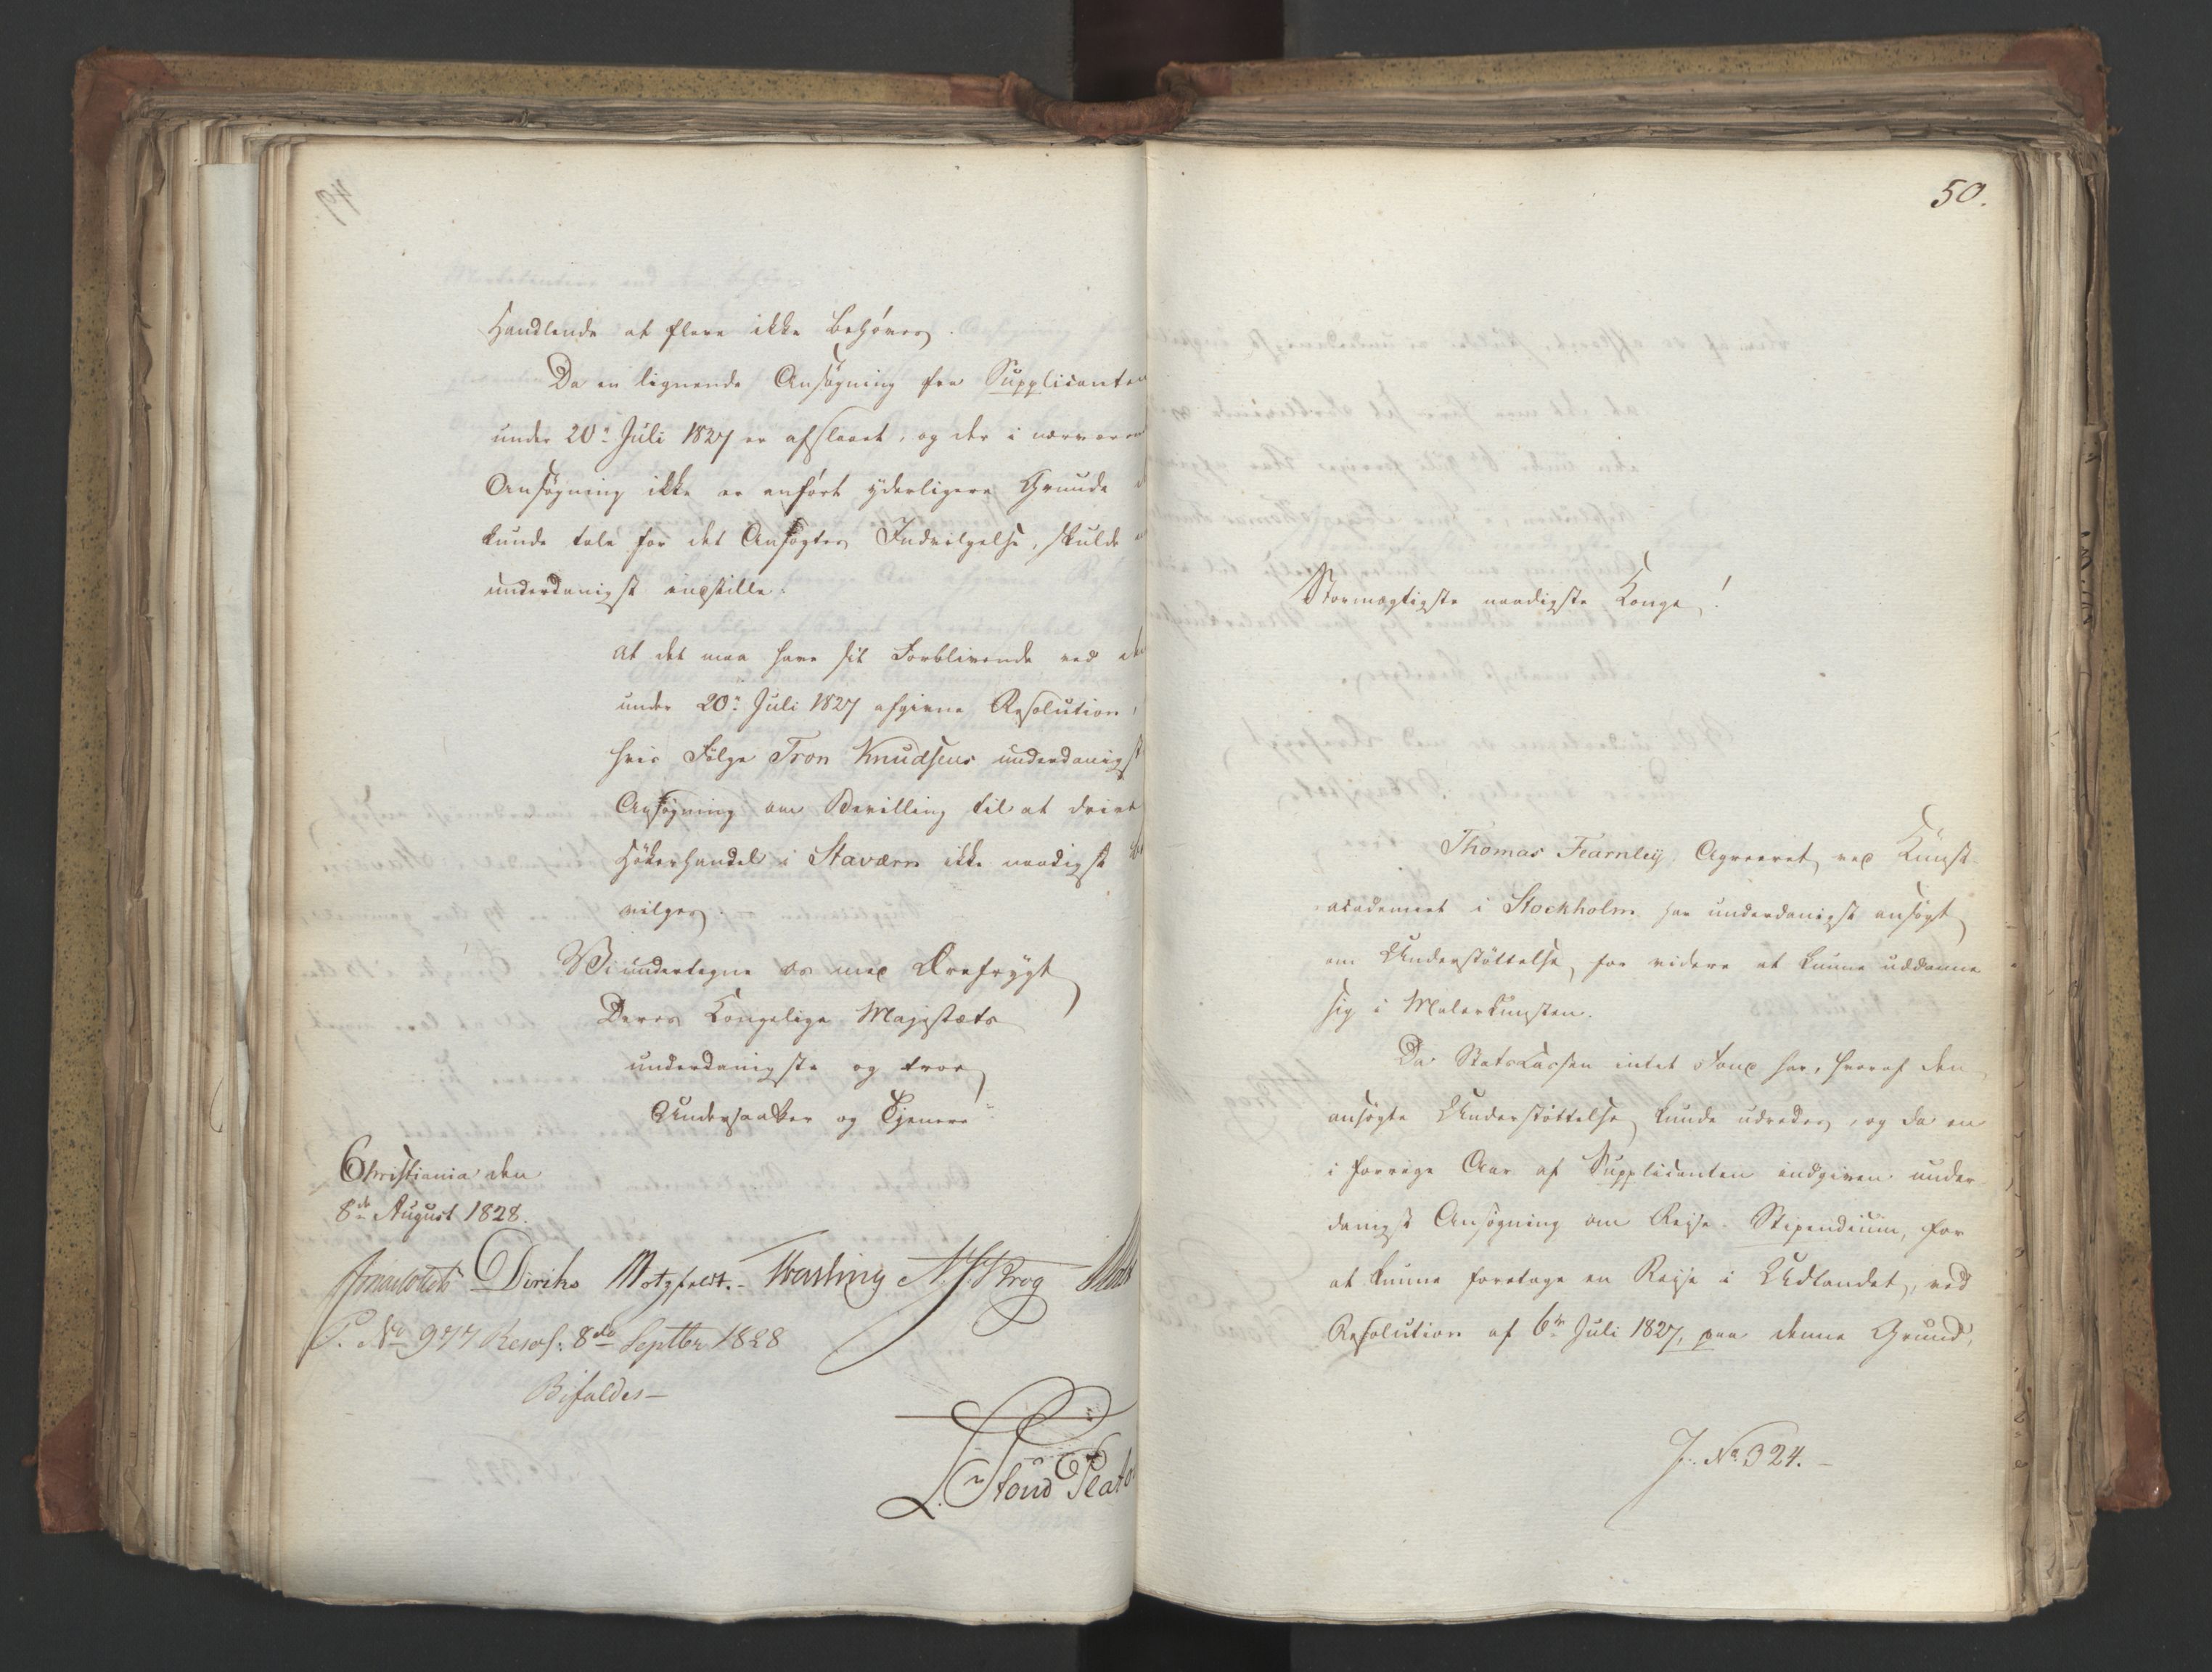 Handlende at flere ikke behøves.
Da en lignende Ansøgning fra Supplicanten
under 20de Juli 1827 er afslaaet, og der i nærværen
Ansøgning ikke er anført yderligere Grunde
kunde tale for det Ansøgtes Indvilgelse, skulde
underdanigst indstille:
at det maa have sit Forblivende ved den
under 20de Juli 1827 afgivne Resolution,
hvis Følge Tron Knudsens underdanigst
Ansøgning om Bevilling til at drive
Høkerhandel i Staværn ikke naadigst
vilges.
Vi undertegne os med Ærefrygt
Deres Kongelige Majestæts
underdanigste og troe
Undersaatter og Tjenere
Christiania den
8de August 1828.
Diriks Motzfeldt. N. J. Krog
P. No 977 Resol: 8de Septbr 1828
Bifaldes
50.
Stormægtigste naadigste Konge!
Thomas Fearnley, Agreeret ved Kunst-
academiet i Stockholm har underdanigst ansøgt
om Understøttelse, for videre at kunne uddanne
sig i Malerkunsten.
Da Statskassen intet Fond har, hvoraf den
ansøgte Understøttelse kunde udredes, og da en
i forrige Aar af Supplicanten indgiven under-
danigst Ansøgning om Reise-Stipendium, for
at kunne foretage en Reise i Udlandet, ved
Resolution af 6te Juli 1827, paa denne Grund,
J. No 324.